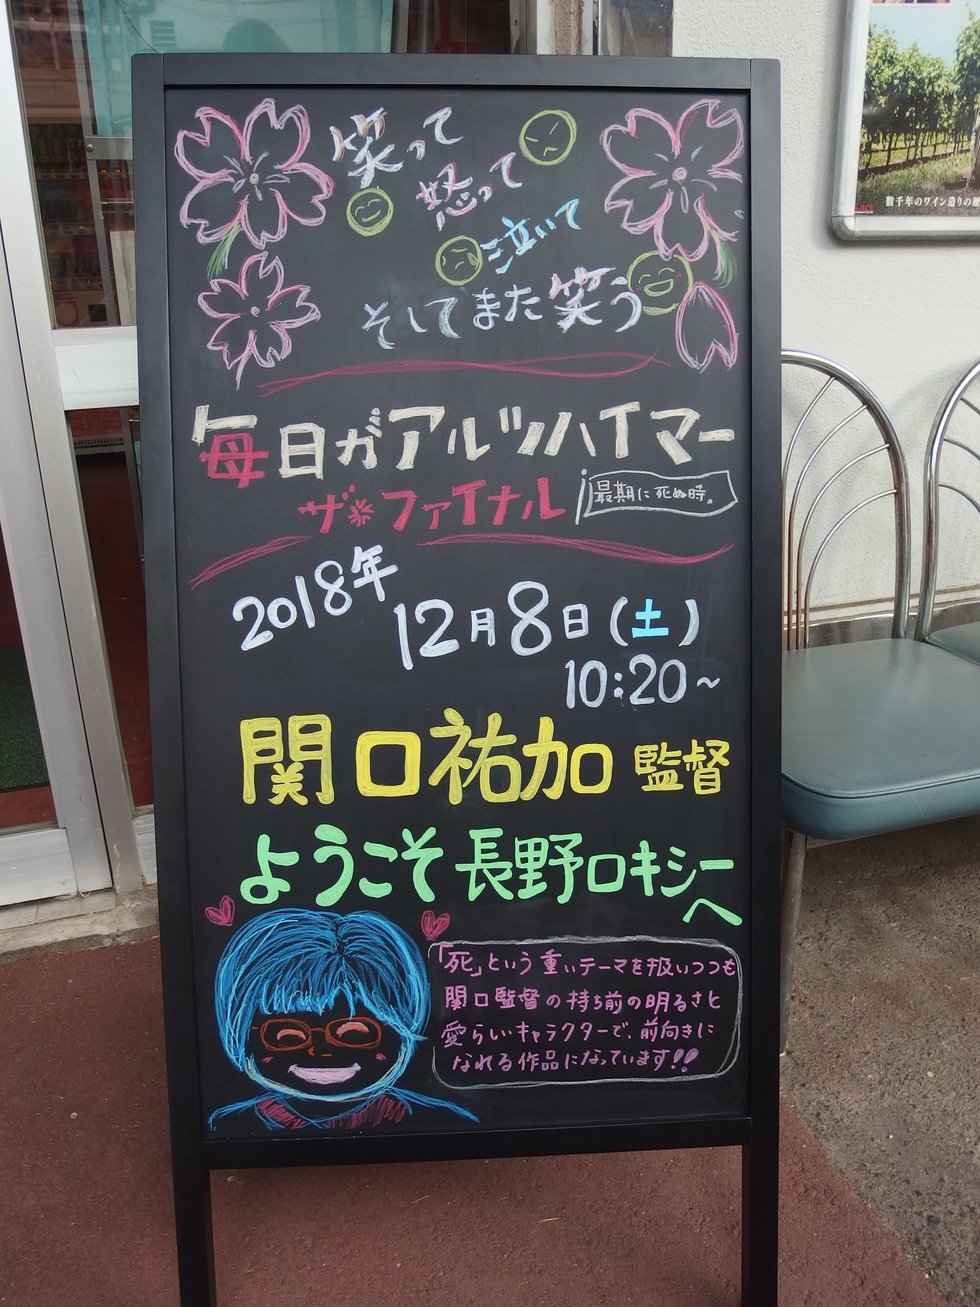 笑って
怒って
泣いて
そしてまた笑う
毎日がアルツハイマー
ザ・ファイナル
最期に死ぬ時。
2018年
12月8日(土)
10:20~
関口祐加 監督
ようこそ 長野ロキシー
へ
「死」という重いテーマを扱いつつも
関口監督の持ち前の明るさと
愛らしいキャラクターで、前向きに
なれる作品になっています!!
数千年のワイン造りの